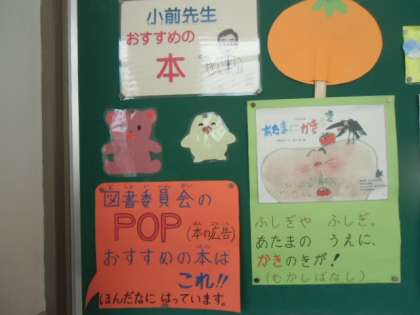 小前先生
おすすめの
本
あたまにかき
図書委員会の
POP(本の広告)
おすすめの本は
これ!!
ほんだなに はっています。
ふしぎや ふしぎ。
あたまの うえに、
かきのきが!
(むかしばなし)